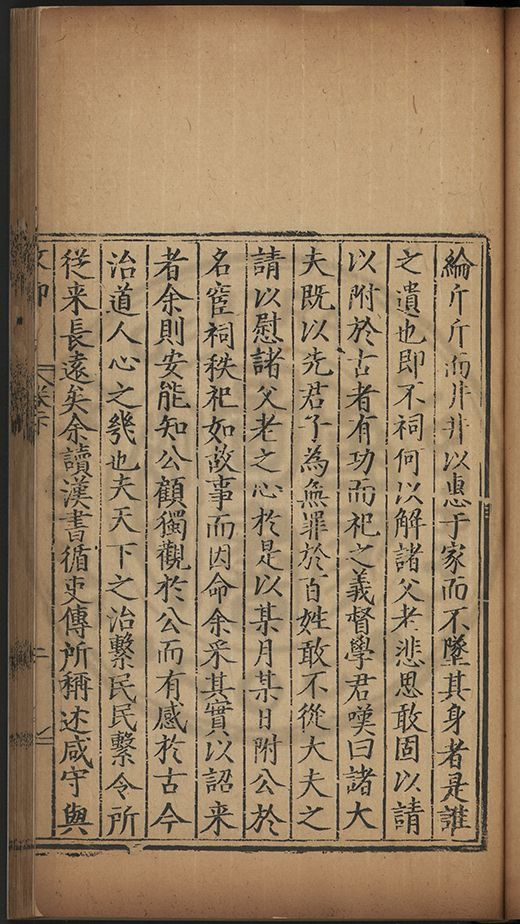 綸斤斤而井井以惠于家而不墜其身者是誰
之遺也即不祠何以解諸父老悲思敢固以請
以附於古者有功而祀之義督學君嘆曰諸大
夫既以先君子為無罪於百姓敢不從大夫之
請以慰諸父老之心於是以某月某日附公於
名宦祠秩祀如故事而因命余采其實以詔来
者余則安能知公顧獨觀於公而有感於古今
治道人心之幾也夫天下之治繫民民繫令所
從来長遠矣余讀漢書循吏傳所稱述咸守與